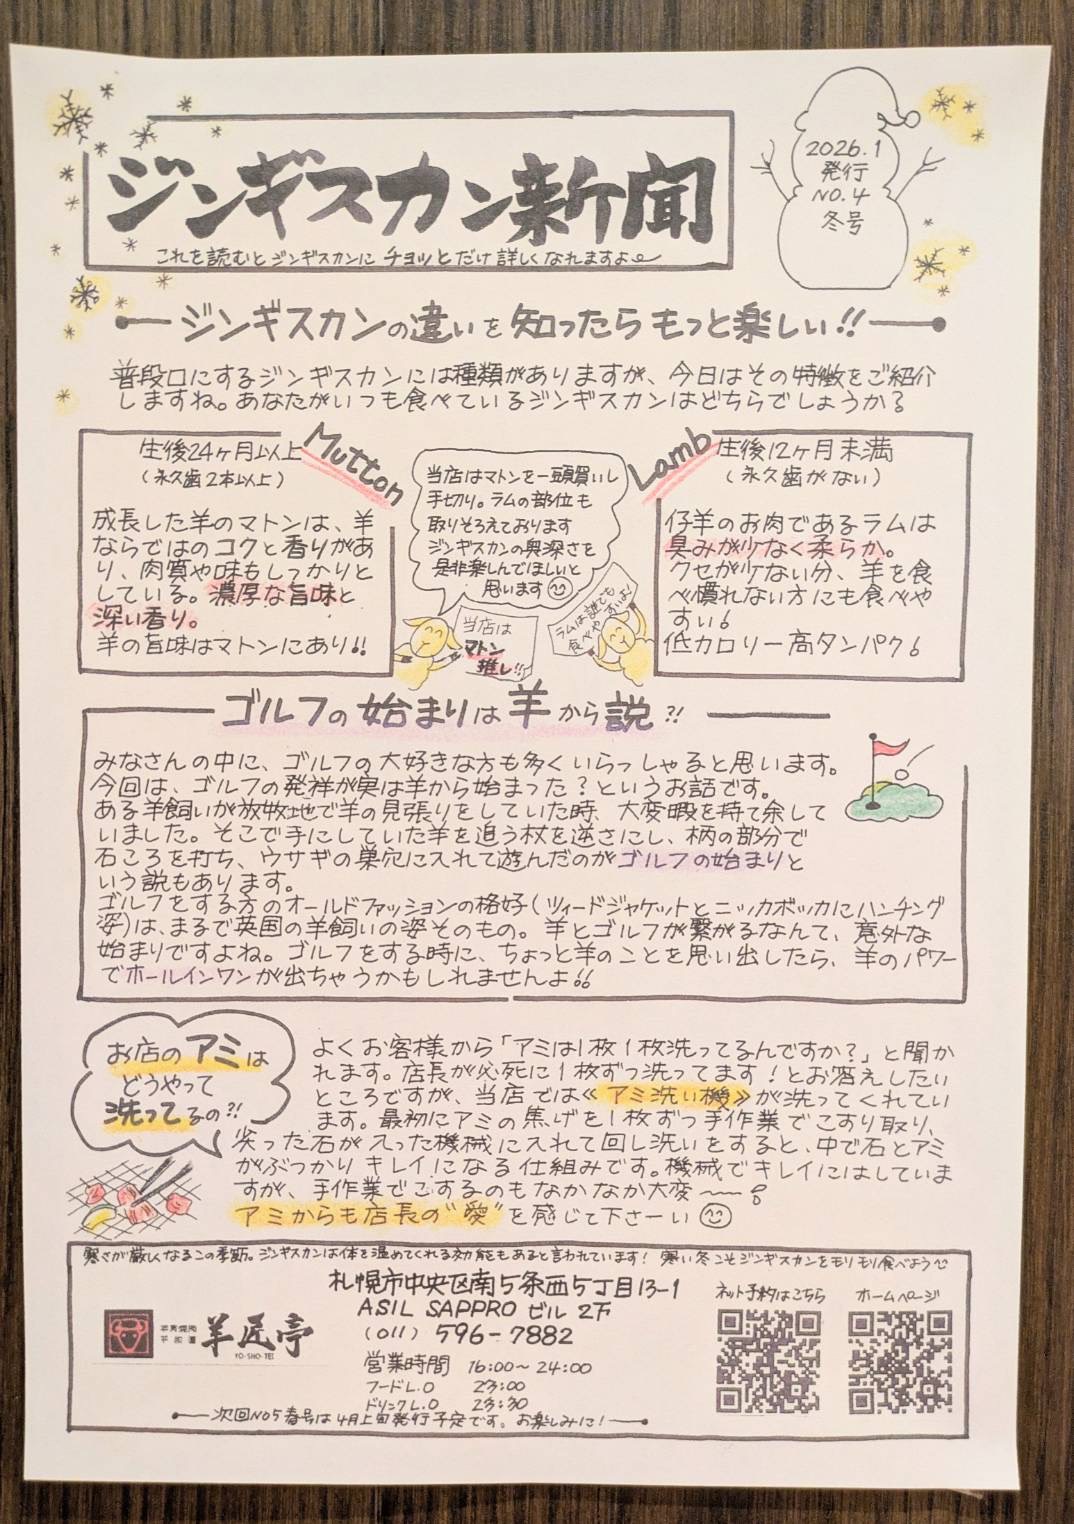 ジンギスカン新聞
これを読むとジンギスカンにチョッとだけ詳しくなれますよ
2026.1
発行
NO.4
冬号
ジンギスカンの違いを知ったらもっと楽しい!!
普段口にするジンギスカンには種類がありますが、今日はその特徴をご紹介
しますね。あなたがいつも食べているジンギスカンはどちらでしょうか?
Mutton
生後24ヶ月以上
(永久歯2本以上)
成長した羊のマトンは、羊
ならではのコクと香りがあ
り、肉質や味もしっかりと
している。濃厚な旨味と
深い香り。
羊の旨味はマトンにあり!!
当店はマトンを一頭買いし
手切り。ラムの部位も
取りそろえております
ジンギスカンの奥深さを
是非楽しんでほしいと
思います
当店は
マトン
推し!!
ラムは誰でも
食べやすいよ!
Lamb
生後12ヶ月未満
(永久歯がない)
仔羊のお肉であるラムは
臭みが少なく柔らか。
クセが少ない分、羊を食
べ慣れない方にも食べや
すい!
低カロリー高タンパク!
ゴルフの始まりは羊から説?!
みなさんの中に、ゴルフの大好きな方も多くいらっしゃると思います。
今回は、ゴルフの発祥が実は羊から始まった?というお話です。
ある羊飼いが放牧地で羊の見張りをしていた時、大変暇を持て余して
いました。そこで手にしていた羊を追う杖を逆さにし、柄の部分で
石ころを打ち、ウサギの巣穴に入れて遊んだのがゴルフの始まりと
いう説もあります。
ゴルフをする方のオールドファッションの格好(ツィードジャケットとニッカボッカにハンチング
姿)は、まるで英国の羊飼いの姿そのもの。羊とゴルフが繋がるなんて、意外な
始まりですよね。ゴルフをする時に、ちょっと羊のことを思い出したら、羊のパワー
でホールインワンが出ちゃうかもしれませんよ!!
お店のアミは
どうやって
洗ってるの?!
よくお客様から「アミは1枚1枚洗ってるんですか?」と聞か
れます。店長が必死に1枚ずつ洗ってます!とお答えしたい
ところですが、当店では《アミ洗い機》が洗ってくれてい
ます。最初にアミの焦げを1枚ずつ手作業でこすり取り、
尖った石が入った機械に入れて回し洗いをすると、中で石とアミ
がぶつかりキレイになる仕組みです。機械でキレイにはしていま
すが、手作業でこするのもなかなか大変〜〜
アミからも店長の"愛"を感じて下さーい
寒さが厳しくなるこの季節。ジンギスカンは体を温めてくれる効能もあると言われています!寒い冬こそジンギスカンをモリモリ食べよう
羊匠亭
YO-SHO-TEI
札幌市中央区南5条西5丁目13-1
ASIL SAPPRO ビル 2F
(011) 596-7882
営業時間 16:00〜24:00
フードL.O 23:00
ドリンクL.O 23:30
ネット予約はこちら
ホームページ
次回NO5春号は4月上旬発行予定です。お楽しみに!